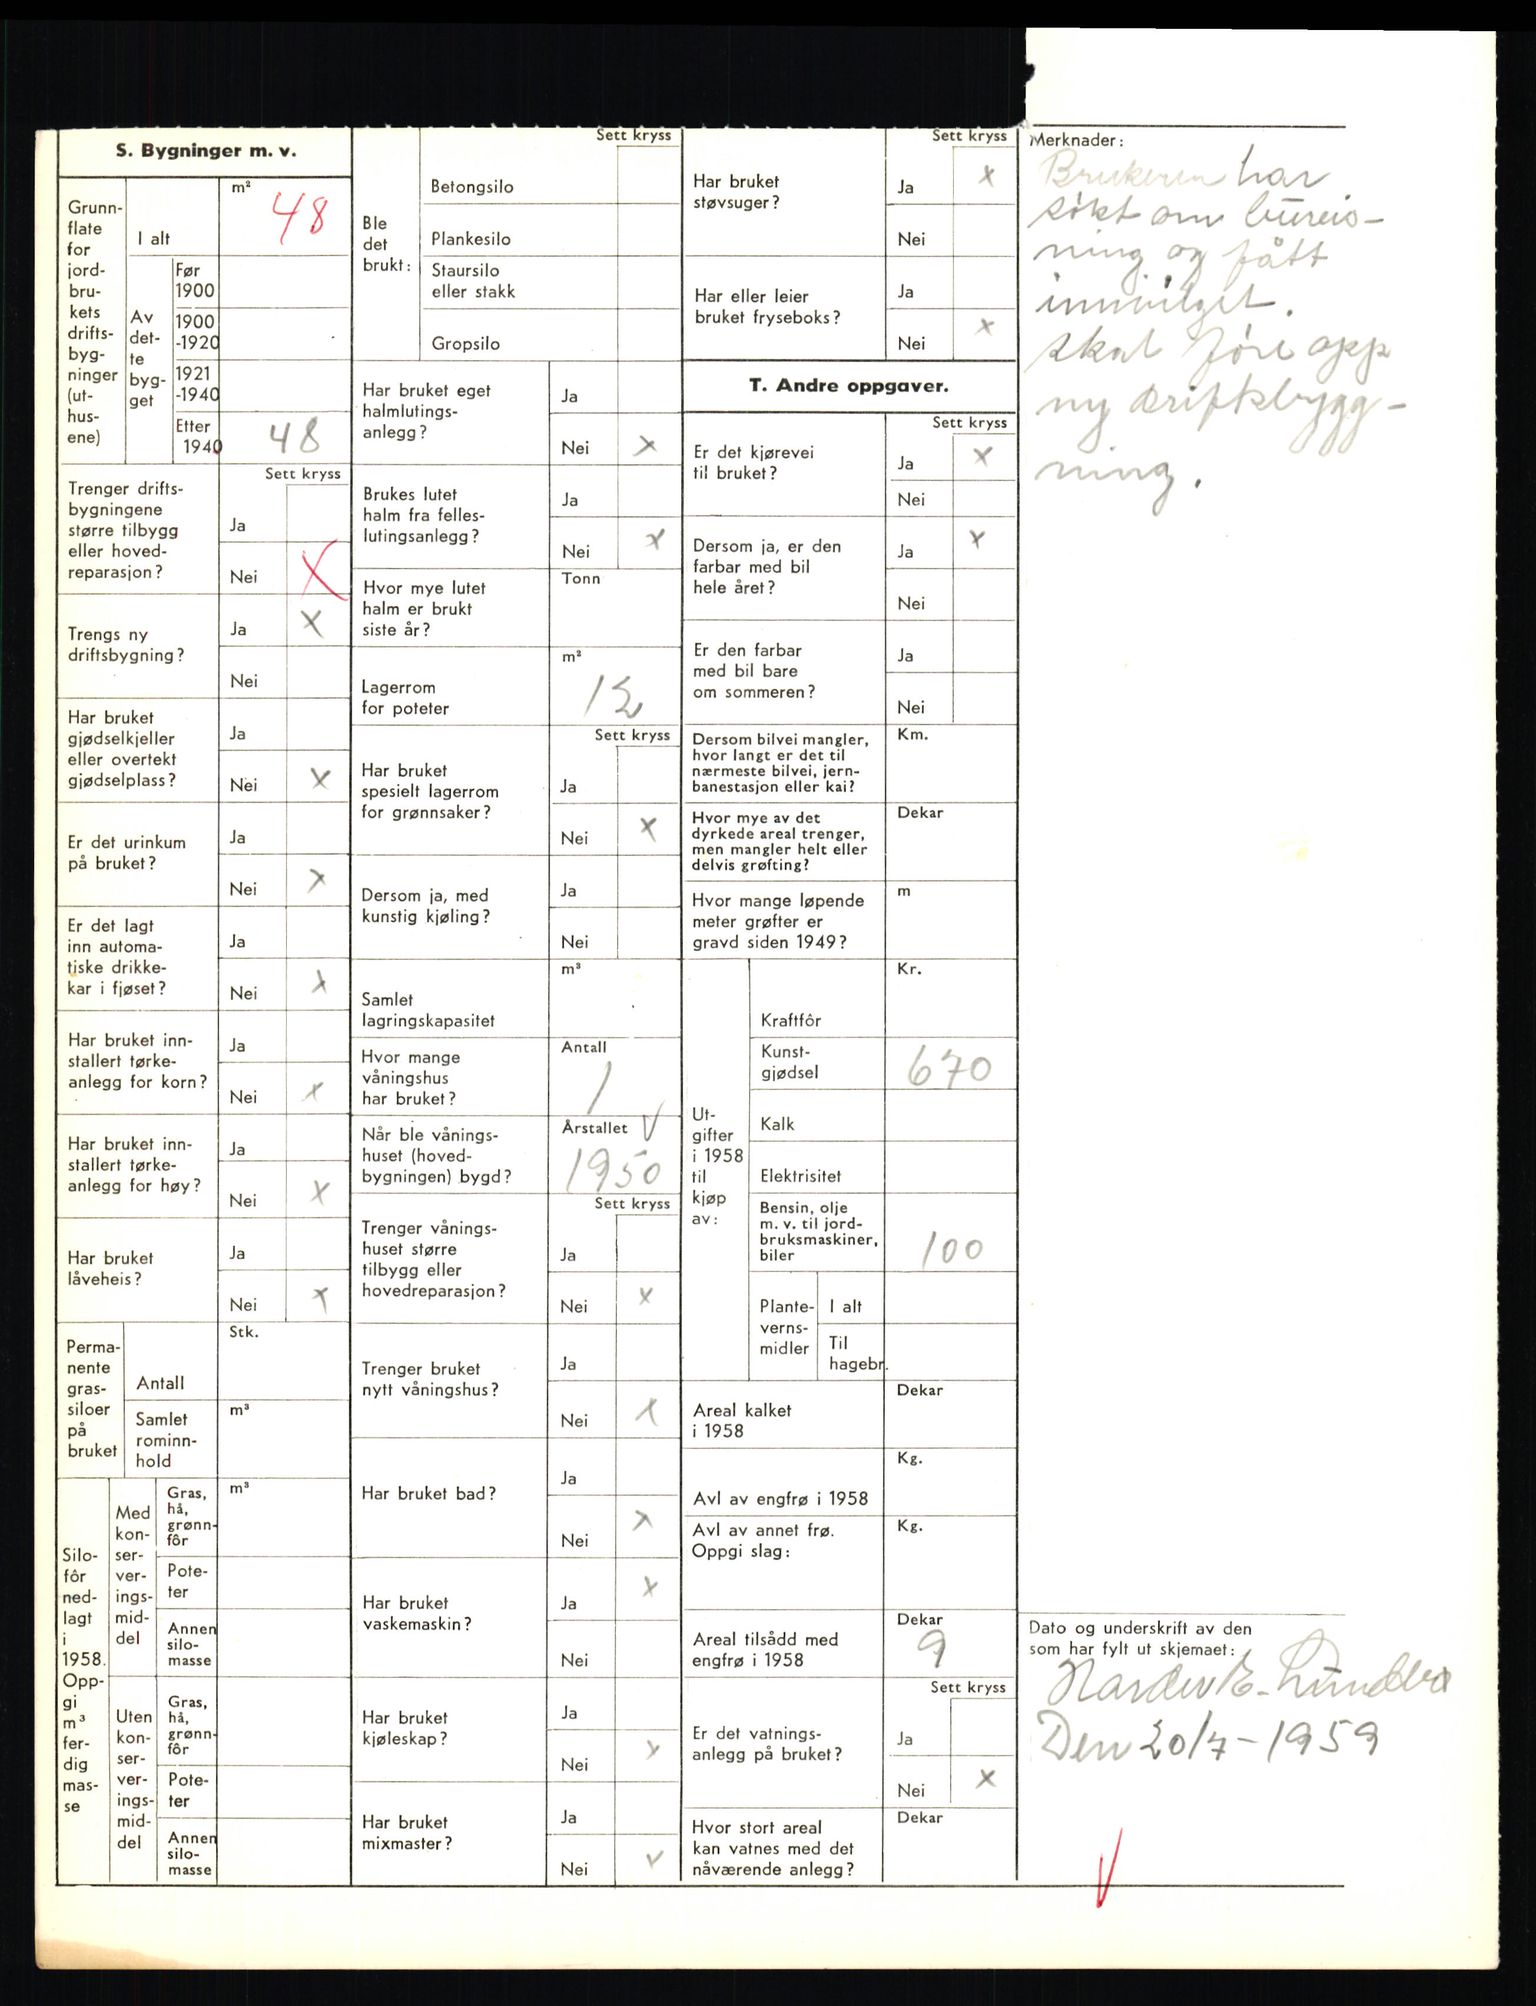 S. Bygninger m. v.
Grunn-
flate
for
jord-
bru-
kets
drifts-
byg-
ninger
(ut-
hus-
ene)
I alt
m²
48
Av
det-
te
byg-
get
Før
1900
1900
-1920
1921
-1940
Etter
1940
48
Sett kryss
Trenger drifts-
bygningene
større tilbygg
eller hoved-
reparasjon?
Ja
Nei X
Trengs ny
driftsbygning?
Ja X
Nei
Har bruket
gjødselkjeller
eller overtekt
gjødselplass?
Ja
Nei X
Er det urinkum
på bruket?
Ja
Nei X
Er det lagt
inn automa-
tiske drikke-
kar i fjøset?
Ja
Nei X
Har bruket inn-
stallert tørke-
anlegg for korn?
Ja
Nei X
Har bruket inn-
stallert tørke-
anlegg for høy?
Ja
Nei X
Har bruket
låveheis?
Ja
Nei X
Perma-
nente
gras-
siloer
på
bruket
Antall
Stk.
Samlet
rominn-
hold
m³
Silo-
fôr
ned-
lagt
i
1958.
Opp-
gi
m³
fer-
dig
mas-
se
Med
kon-
ser-
ver-
ings-
mid-
del
Gras,
hå,
grønn-
fôr
m³
Pote-
ter
Annen
silo-
masse
Uten
kon-
ser-
ver-
ings-
mid-
del
Gras,
hå,
grønn-
fôr
Pote-
ter
Annen
silo-
masse
Sett kryss
Ble
det
brukt:
Betongsilo
Plankesilo
Staursilo
eller stakk
Gropsilo
Har bruket eget
halmlutings-
anlegg?
Ja
Nei X
Brukes lutet
halm fra felles-
lutingsanlegg?
Ja
Nei X
Hvor mye lutet
halm er brukt
siste år?
Tonn
Lagerrom
for poteter
m²
12
Sett kryss
Har bruket
spesielt lagerrom
for grønnsaker?
Ja
Nei X
Dersom ja, med
kunstig kjøling?
Ja
Nei
Samlet
lagringskapasitet
m³
Hvor mange
våningshus
har bruket?
Antall
1
Når ble vånings-
huset (hoved-
bygningen) bygd?
Årstallet V
1950
Sett kryss
Trenger vånings-
huset større
tilbygg eller
hovedreparasjon?
Ja
Nei X
Trenger bruket
nytt våningshus?
Ja
Nei X
Har bruket bad?
Ja
Nei X
Har bruket
vaskemaskin?
Ja X
Nei
Har bruket
kjøleskap?
Ja
Nei X
Har bruket
mixmaster?
Ja
Nei V
Sett kryss
Har bruket
støvsuger?
Ja X
Nei
Har eller leier
bruket fryseboks?
Ja
Nei X
T. Andre oppgaver.
Sett kryss
Er det kjørevei
til bruket?
Ja X
Nei
Dersom ja, er den
farbar med bil
hele året?
Ja X
Nei
Er den farbar
med bil bare
om sommeren?
Ja
Nei
Dersom bilvei mangler,
hvor langt er det til
nærmeste bilvei, jern-
banestasjon eller kai?
Km.
Hvor mye av det
dyrkede areal trenger,
men mangler helt eller
delvis grøfting?
Dekar
Hvor mange løpende
meter grøfter er
gravd siden 1949?
m
Ut-
gifter
i 1958
til
kjøp
av:
Kr.
Kraftfôr
Kunst-
gjødsel
670
Kalk
Elektrisitet
Bensin, olje
m. v. til jord-
bruksmaskiner,
biler
100
Plante-
verns-
midler
I alt
Til
hagebr.
Areal kalket
i 1958
Dekar
Avl av engfrø i 1958
Kg.
Avl av annet frø.
Oppgi slag:
Kg.
Areal tilsådd med
engfrø i 1958
Dekar
9
Sett kryss
Er det vatnings-
anlegg på bruket?
Ja
Nei X
Hvor stort areal
kan vatnes med det
nåværende anlegg?
Dekar
Merknader:
Brukeren har
søkt om bureis-
ning og fått
innvilget.
skal føre opp
ny driftsbygg-
ning.
Dato og underskrift av den
som har fylt ut skjemaet:
E.
Den 20/7-1959
V